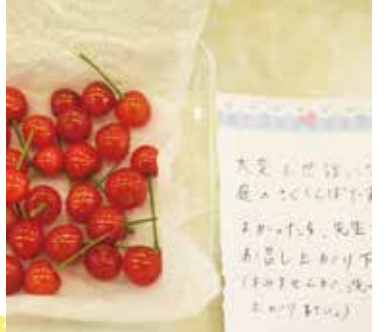 大変お世話に
庭のさくらんぼ
よかったら、先生
お召し上がり下
(すみませんが、洗
上がり下さい。)